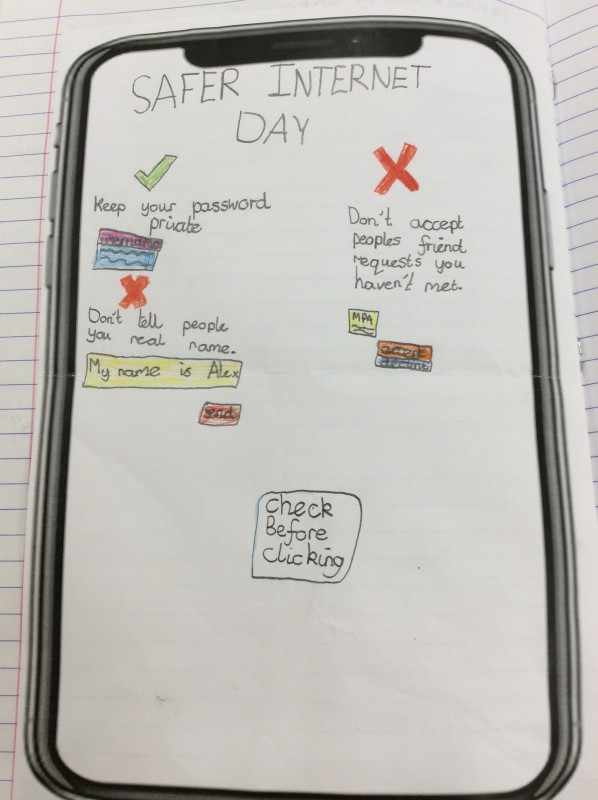 SAFER INTERNET
DAY
Keep your password
private
Don't tell people
you real name.
My name is Alex
send
Don't accept
peoples friend
requests you
haven't met.
MPA
accept
decline
Check
Before
Clicking